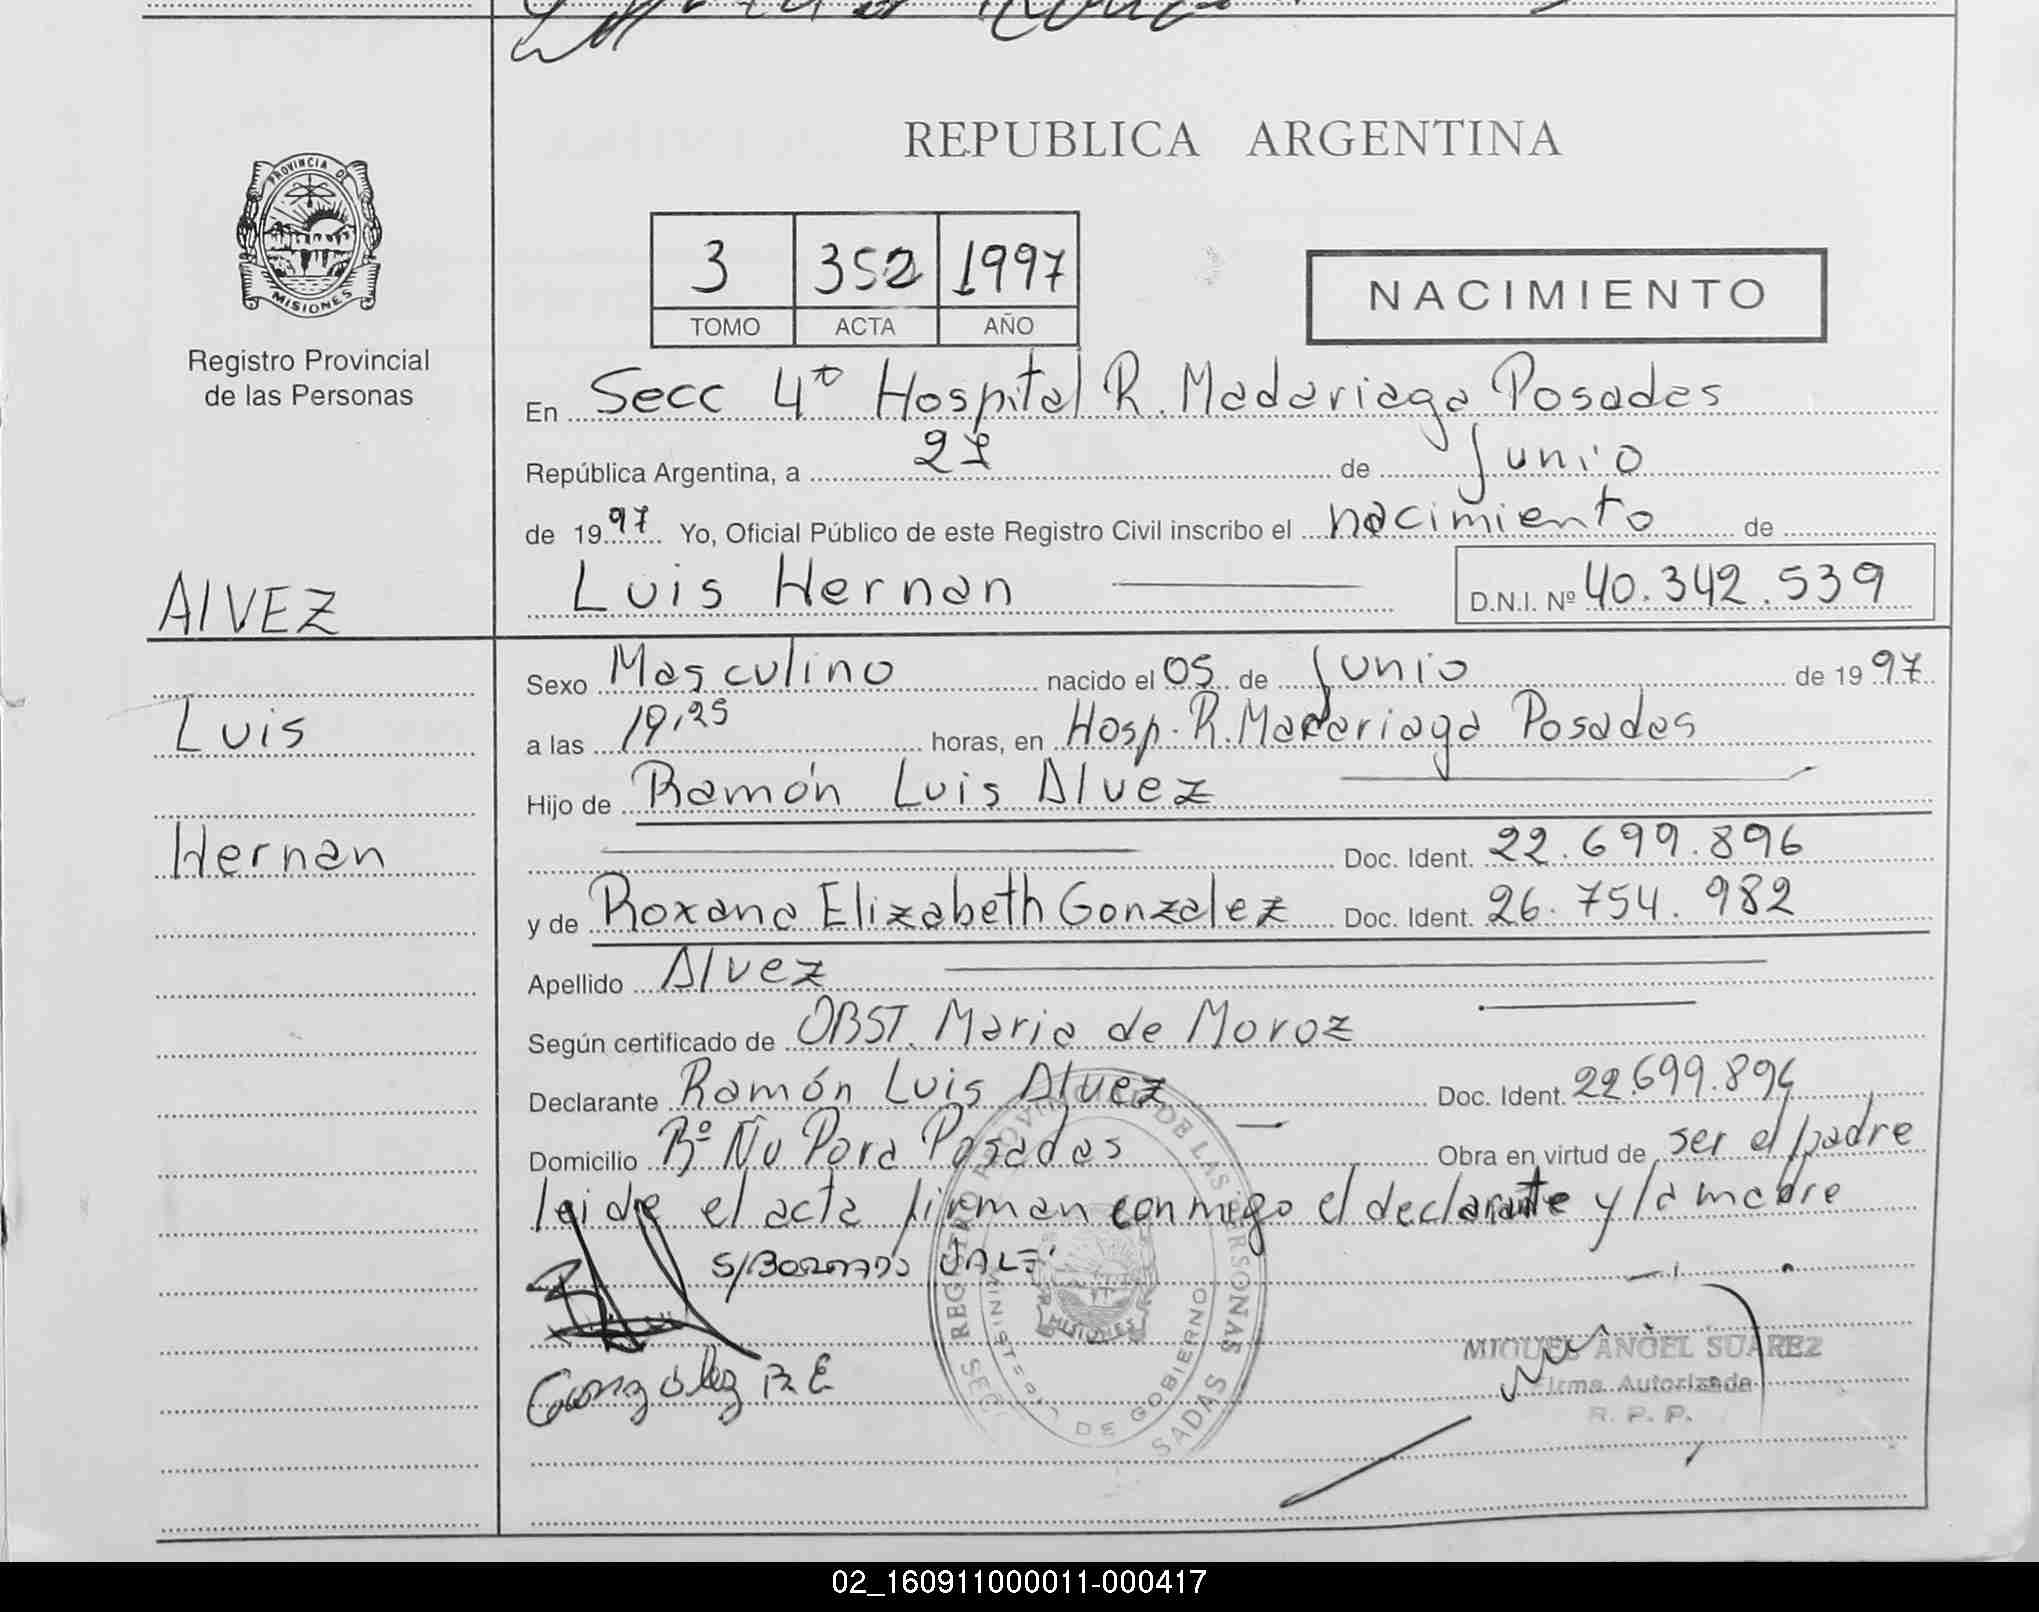 REPUBLICA ARGENTINA
PROVINCIA DE
MISIONES
Registro Provincial
de las Personas
3 352 1997
TOMO ACTA AÑO
NACIMIENTO
En Secc 4º Hospital R. Madariaga Posadas
República Argentina, a 27 de Junio
de 1997 Yo, Oficial Público de este Registro Civil inscribo el nacimiento de
Luis Hernan D.N.I. Nº 40.342.539
AlVEZ
Luis
Hernan
Sexo Masculino nacido el 05 de Junio de 1997
a las 19,25 horas, en Hosp. R. Madariaga Posadas
Hijo de Ramón Luis Alvez
Doc. Ident. 22.699.896
y de Roxana Elizabeth Gonzalez Doc. Ident. 26.754.982
Apellido Alvez
Según certificado de OBST. Maria de Moroz
Declarante Ramón Luis Alvez Doc. Ident. 22.699.896
Domicilio Bº Ñu Pora Posadas Obra en virtud de ser el padre
leida el acta firman conmigo el declarante y la madre
S/BORRADO VALE
Gonzalez R E
MIGUEL ANGEL SUAREZ
Firma Autorizada
R. P. P.
02_160911000011-000417